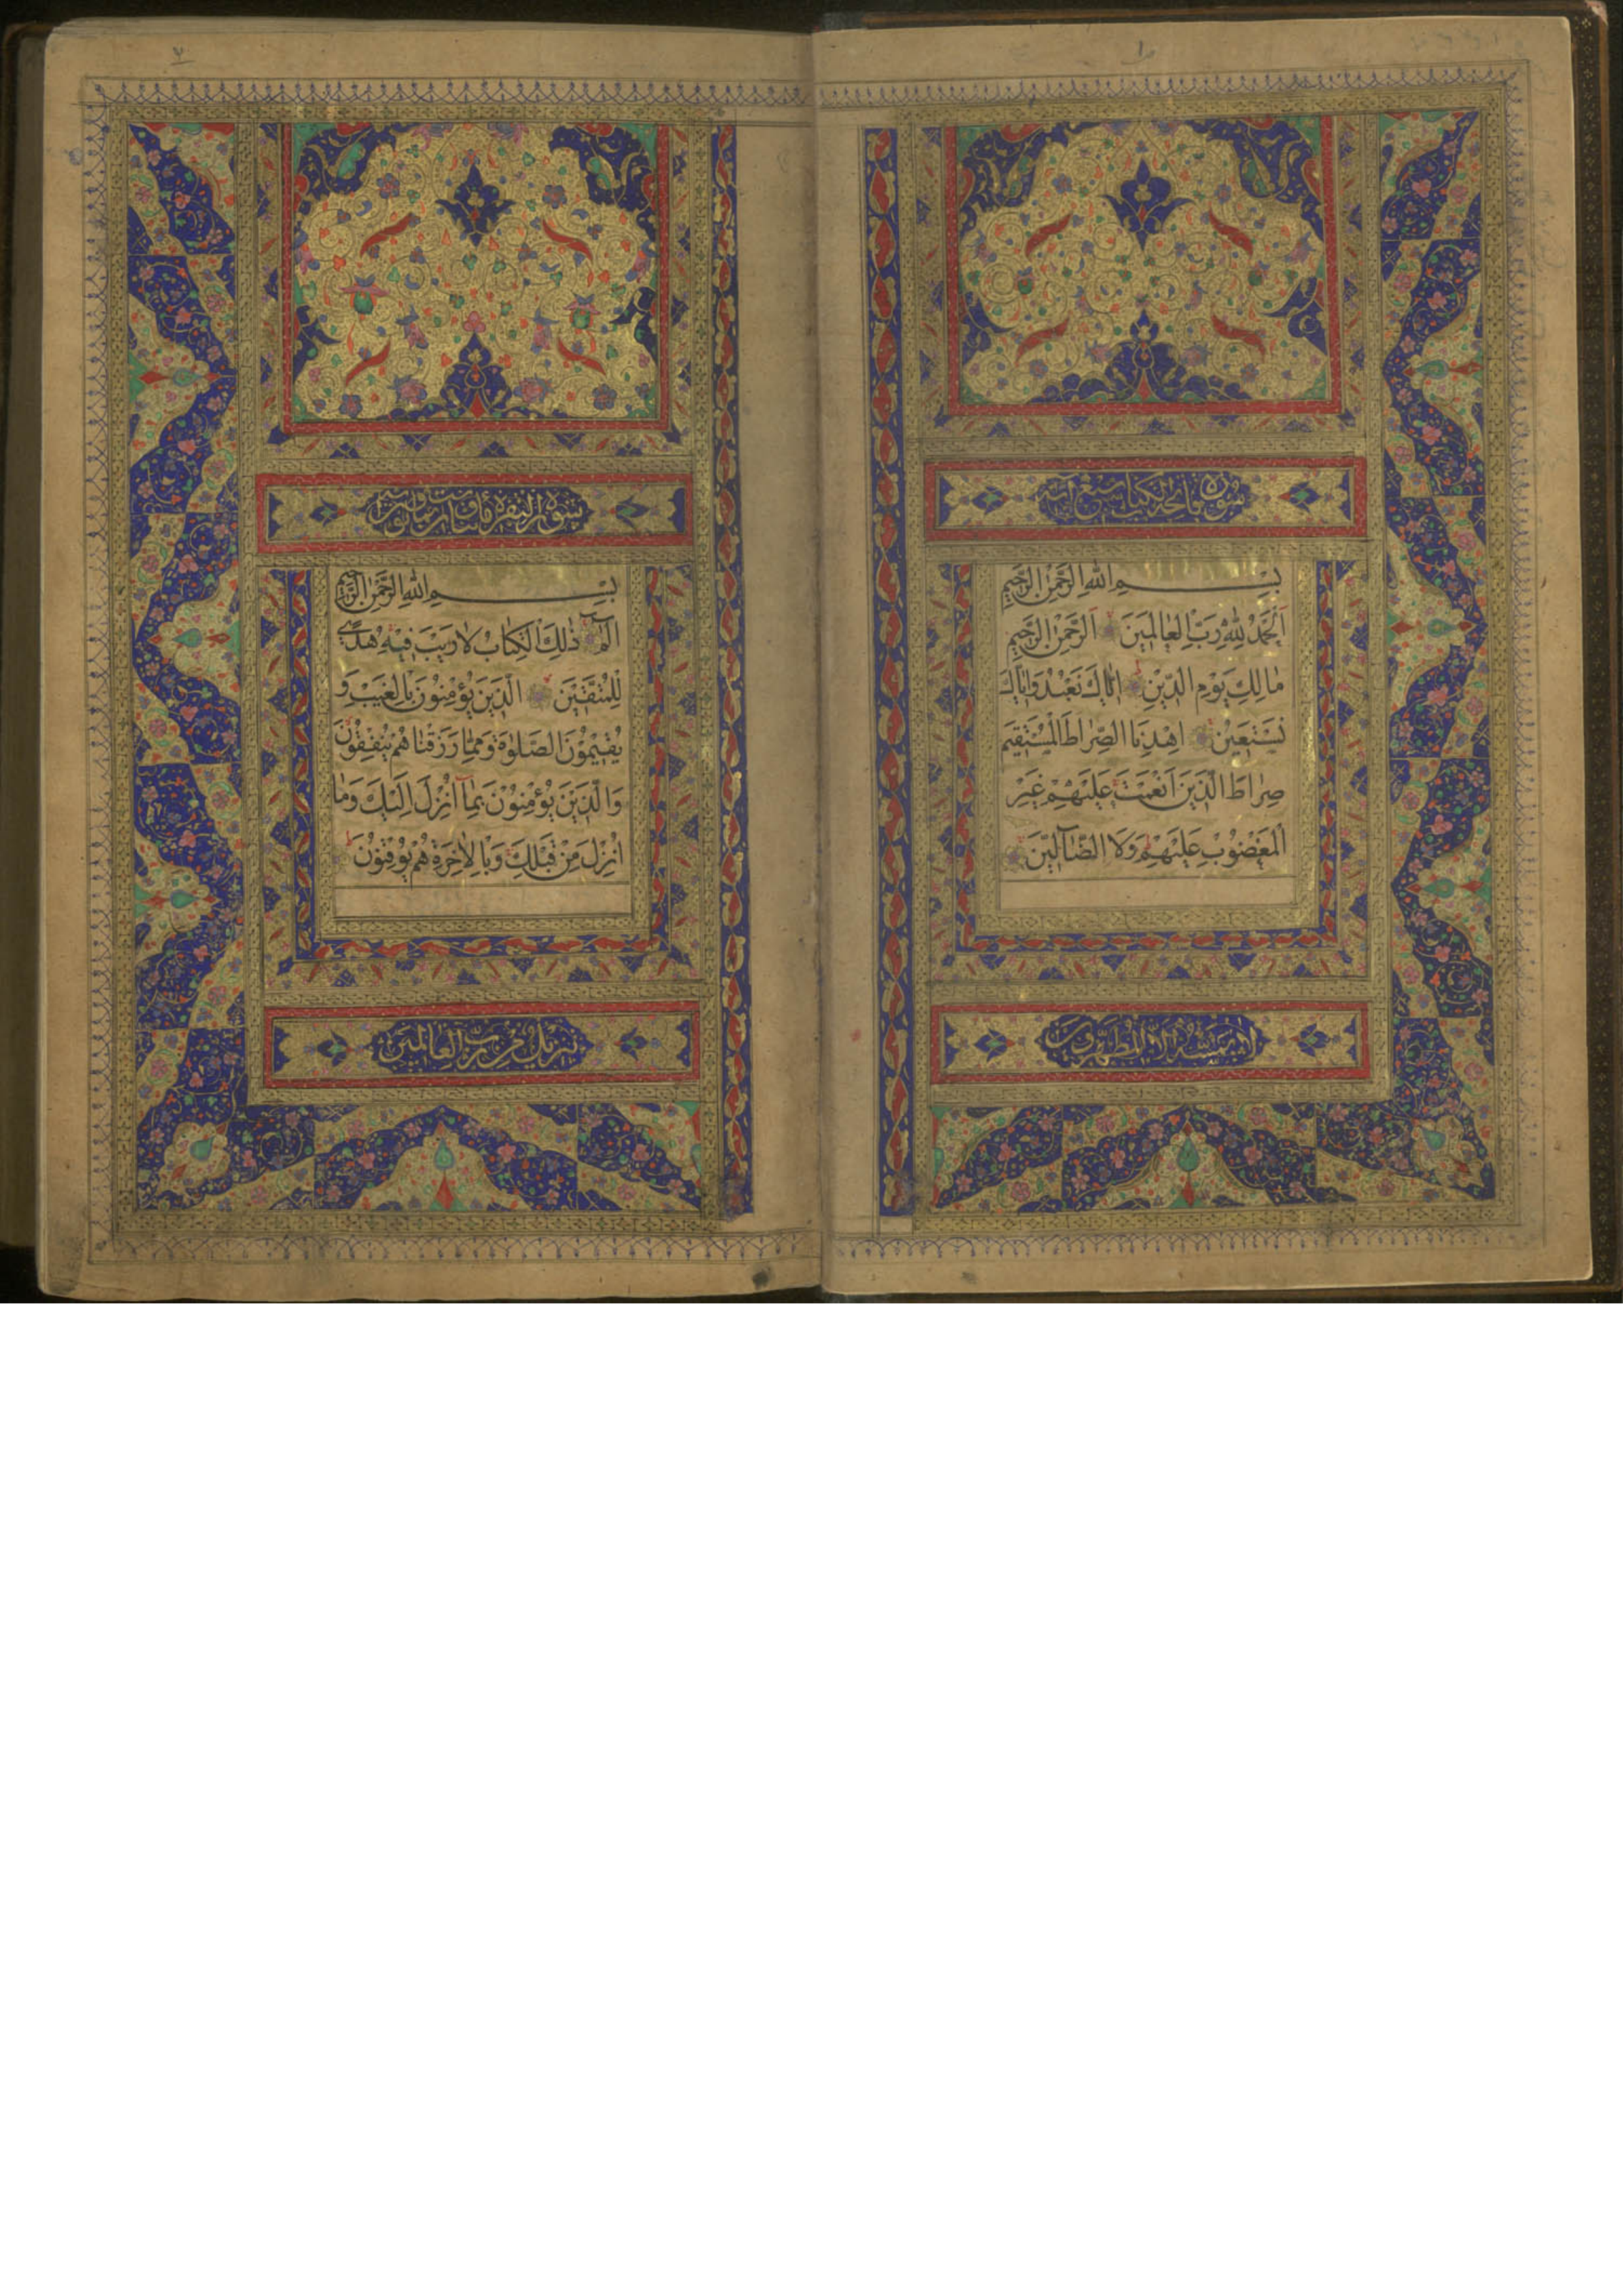 سورة فاتحة الكتاب سبع آية
بِسْمِ اللهِ الرَّحْمٰنِ الرَّحِيمِ
اَلْحَمْدُ لِلّٰهِ رَبِّ الْعٰالَمِينَ اَلرَّحْمٰنِ الرَّحِيمِ
مٰالِكِ يَوْمِ الدِّينِ اِيّٰاكَ نَعْبُدُ وَاِيّٰاكَ
نَسْتَعِينُ اِهْدِنَا الصِّرٰاطَ الْمُسْتَقِيمَ
صِرٰاطَ الَّذِينَ اَنْعَمْتَ عَلَيْهِمْ غَيْرِ
الْمَغْضُوبِ عَلَيْهِمْ وَلَا الضَّآلِّينَ
لا يمسه الا المطهرون
سورة البقرة
بِسْمِ اللهِ الرَّحْمٰنِ الرَّحِيمِ
الٓمٓ ذٰلِكَ الْكِتٰابُ لٰا رَيْبَ فِيهِ هُدًى
لِلْمُتَّقِينَ الَّذِينَ يُؤْمِنُونَ بِالْغَيْبِ وَ
يُقِيمُونَ الصَّلٰوةَ وَمِمّٰا رَزَقْنٰاهُمْ يُنْفِقُونَ
وَالَّذِينَ يُؤْمِنُونَ بِمٰٓا اُنْزِلَ اِلَيْكَ وَمٰا
اُنْزِلَ مِنْ قَبْلِكَ وَبِالْاٰخِرَةِ هُمْ يُوقِنُونَ
تنزيل من رب العالمين